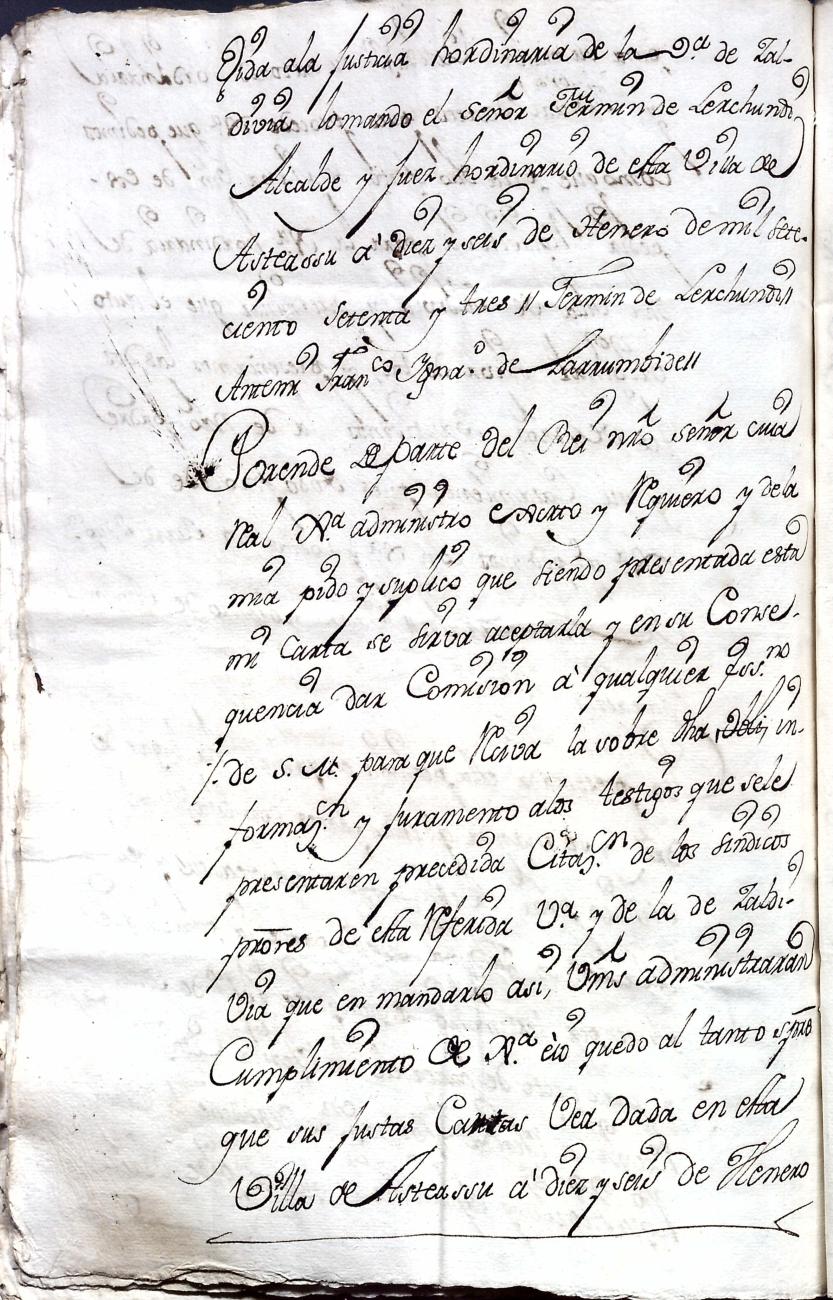 Gida ala Justicia hordinaria de la V.ª de Zal-
divia, lomando el Señor Fermin de Lerchundi
Alcalde y Juez hordinario de esta Villa de
Asteassu a' diez y seis de Henero de mil sete-
ciento setenta y tres // Fermin de Lerchundi //
Antemi Fran.co Ygna.º de Larrumbide //
Porende de parte del Rei nrô Señor cuia
Real Xª administro exorto y Requiero y dela
mia pido y suplico que siendo presentada esta
mi Carta se sirva aceptarla y en su Conse-
quencia dar Comision à qualquier Ess.no
/. de S. M. para que Reciva la sobre dha in-
formaz.on y Juramento alos testigos que sele
presentaren precedida Citaz.on de los Sindicos
prōres de esta Referida V.ª y de la de Zaldi-
via que en mandarlo asi, Vms administraran
Cumplimiento de X.ª èio quedo al tanto spre
que sus Justas Cartas Vea dada en esta
Villa de Asteassu a' diez y seis de Henero